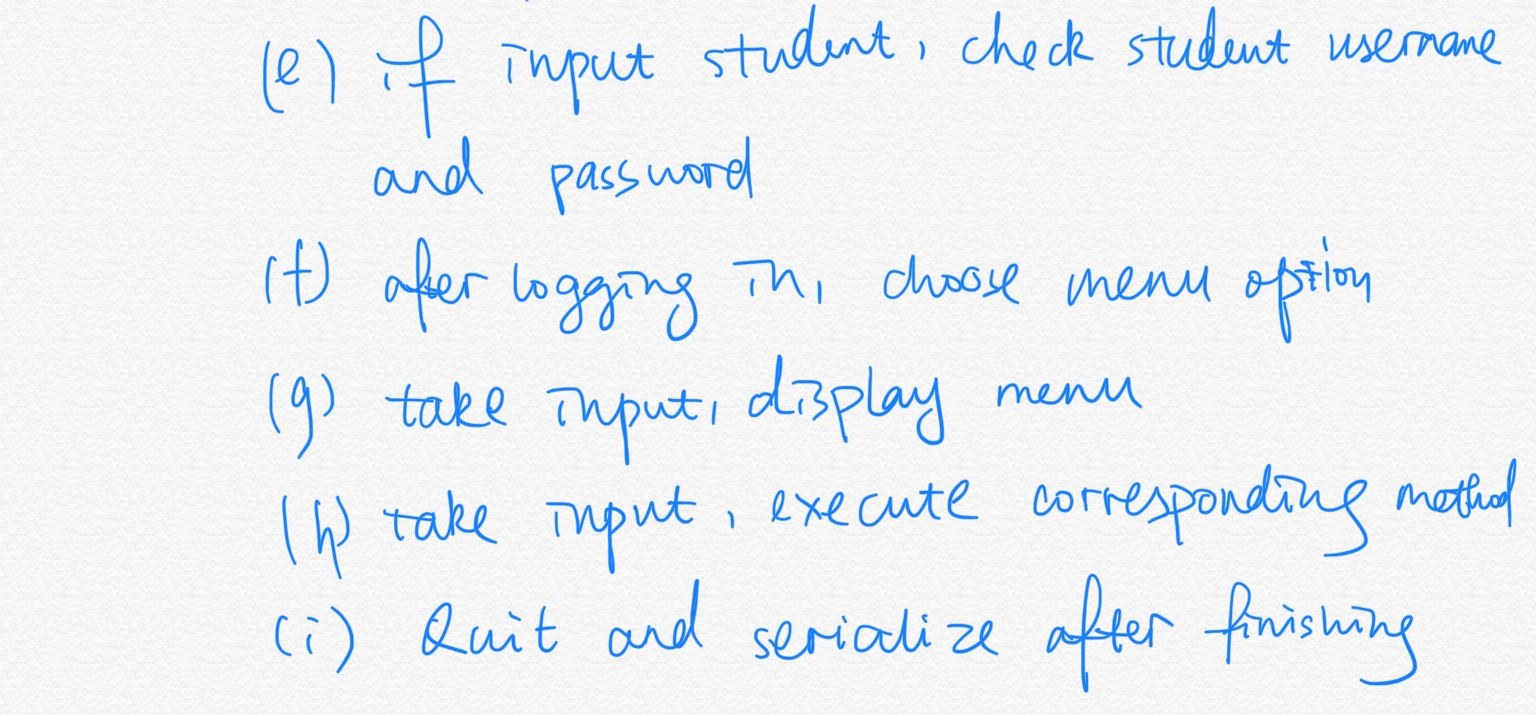 (e) if input student, check student username
and password
(f) after logging in, choose menu option
(g) take input, display menu
(h) take input, execute corresponding method
(i) Quit and serialize after finishing